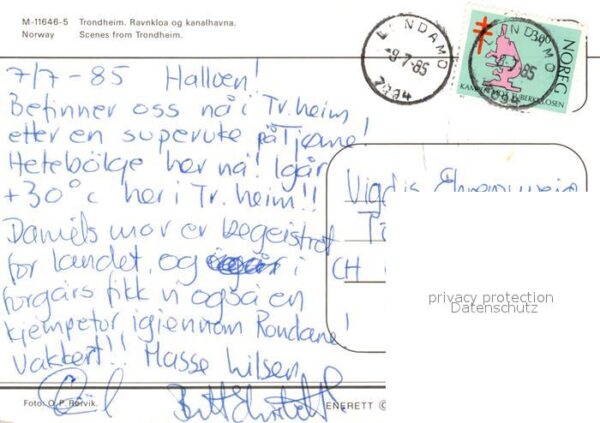 M-11646-5 Trondheim. Ravnkloa og kanalhavna.
Norway Scenes from Trondheim.
LUNDAMO
-9.7.85
7234
NOREG
300
KAMPEN MOT TUBERKULOSEN
7/7-85 Halloen!
Befinner oss nå i Tr.heim
etter en superuke på Tjøme!
Hetebölge her nå! Igår
+30°c her i Tr.heim!!
Daniels mor er begeistret
for landet, og i
forgårs fikk vi også en
kjempetur igjennom Rondane!
Vakkert!! Masse hilsen
Vigdis
CH
privacy protection
Datenschutz
Foto: O. P. Rørvik.
ENERETT ©